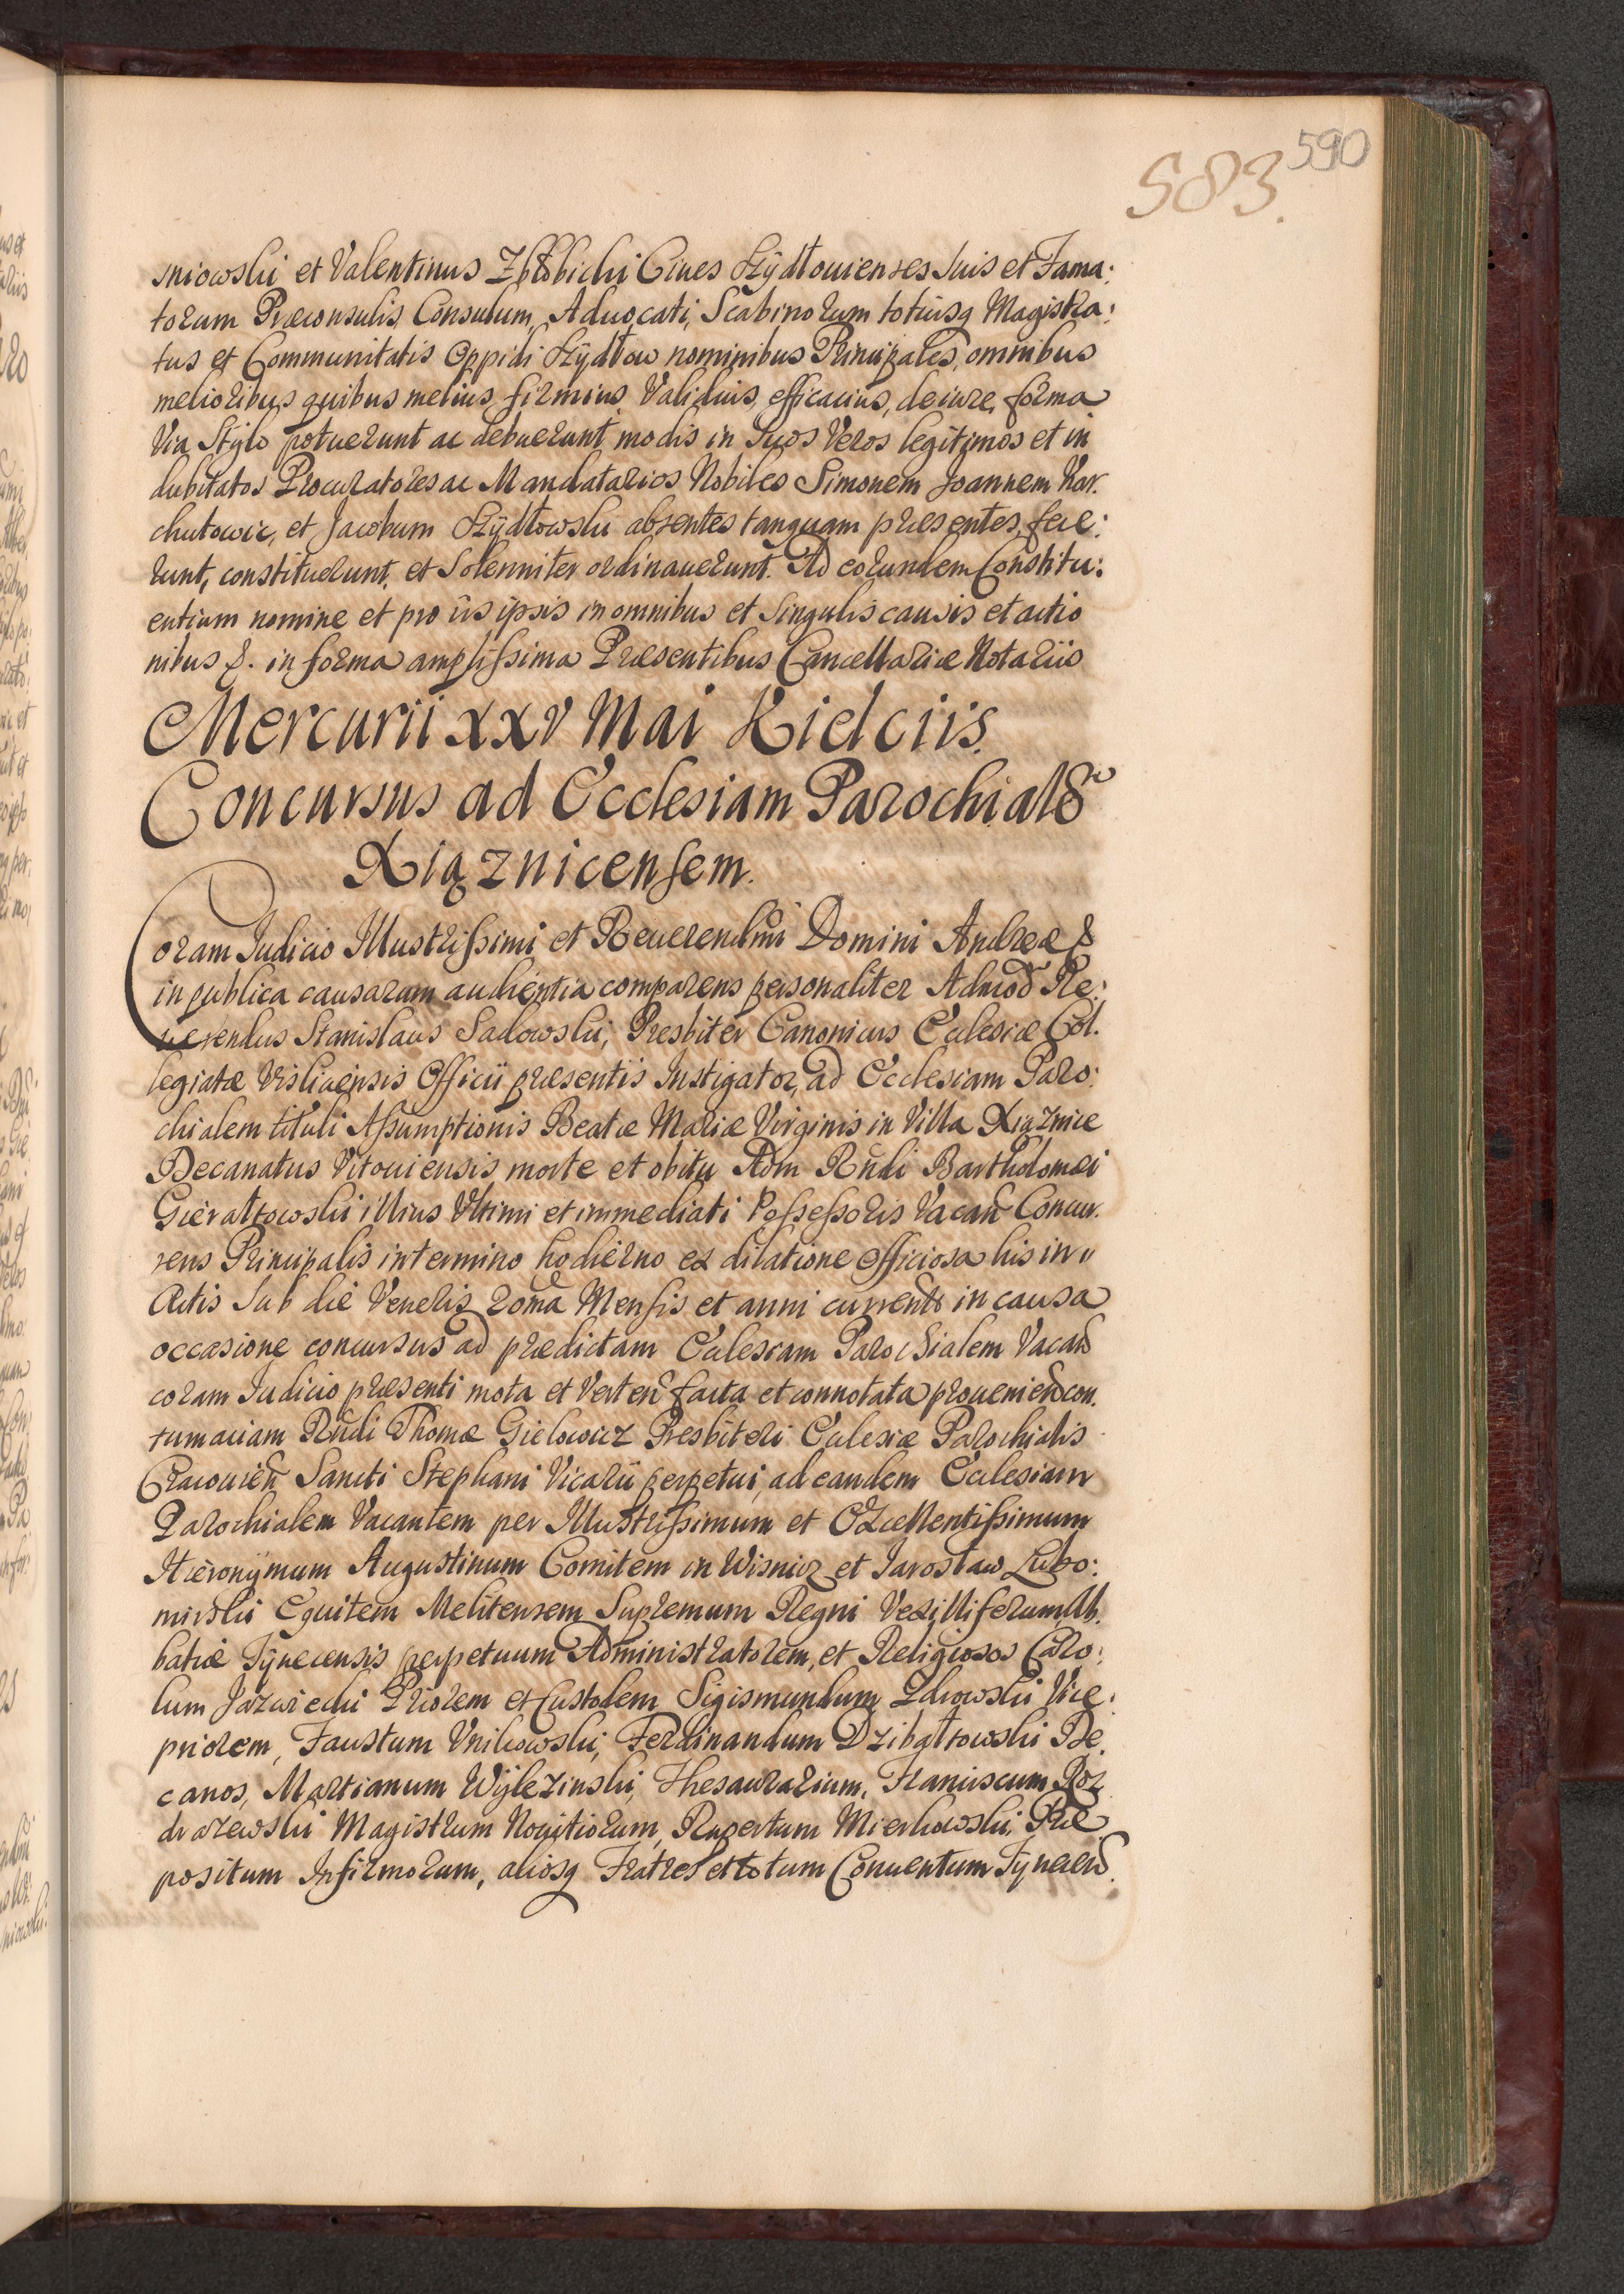 590
583.
sniowski et Valentinus Cives Szÿdłouienses suis et Fama:
torum Præconsulis, Consulum, Aduocati, Scabinorum totiusq Magistra:
tus et Communitatis Oppidi Szÿdłow nominibus Principales, omnibus
melioribus quibus melius, firmius, Validius, efficacius, de iure, forma
Via, Stÿlo potuerunt ac debuerunt modis in suos Veros legitimos et in
dubitatos Procuratores ac Mandatarios Nobiles Simonem Joannem Kar.
chutowic, et Jacobum Szÿdłowski absentes tanquam præsentes, fece:
runt, constituerunt, et Solenniter ordinauerunt. Ad eorundem Constitu:
entium nomine et pro iis ipsis in omnibus et Singulis causis et actio
nibus &. in forma amplissima Præsentibus Cancellariæ Notariis
Mercurii XXV Mai Kielciis.
Concursus ad Ecclesiam Parochialē
Xiąznicensem.
Coram Judicio Illustrissimi et Reuerendmi Domini Andreæ &
in publica causarum audientia comparens personaliter Admod Re:
uerendus Stanislaus Sadowski, Presbiter Canonicus Ecclesiæ Col.
legiatæ Visliciensis Officii præsentis Instigator, ad Ecclesiam Paro:
chialem tituli Assumptionis Beatæ Mariæ Virginis in Villa Xiąznice
Decanatus Vitouiensis, morte et obitu Adm Rndi Bartholomæi
Gierałtowski illius Vltimi et immediati Possessoris Vacan Concur.
rens Principalis in termino hodierno ex dilatione officiosa his in
Actis Sub die Veneris 20ma Mensis et anni currents in causa
occasione concursus ad prædictam Ecclesiam Parochialem Vacan
coram Judicio præsenti mota et Verten facta et connotata prouenien con.
tumaciam Rndi Thomæ Gielowicz Presbiteri Ecclesiæ Parochialis
Cracouien Sancti Stephani Vicarii perpetui, ad eandem Ecclesiam
Parochialem Vacantem per Illustrissimum et Excellentissimum
Hieronÿmum Augustinum Comitem in Wisnicz et Jarosław Lubo:
mirski Equitem Melitensem Supremum Regni Vexilliferum Ab.
batiæ Tÿnecensis perpetuum Administratorem, et Religiosos Caro:
lum Jazwiecki Priorem et Custodem Sigismundum Zdrowski Vice:
priorem, Faustum Vnikowski, Ferdinandum Dzibałtowski De.
canos, Martianum Wÿlezinski, Thesaurarium, Franciscum Roz
drazewski Magistrum Nouitiorum, Rupertum Mierkowski Præ
positum Infirmorum, aliosq Fratres et totum Conuentum Tÿnecen.